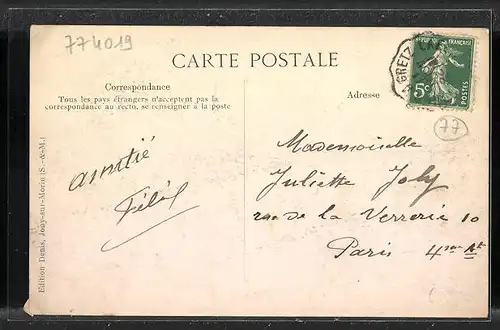 774019
CARTE POSTALE
Correspondance
Tous les pays étrangers n'acceptent pas la
correspondance au recto, se renseigner à la poste
Adresse
RÉPUBLIQUE FRANÇAISE
5c
POSTES
GRETZ
77
amitié
Mademoiselle
Juliette Joly
rue de la Verrerie 10
Paris 4me At
Edition Denis, Jouy-sur-Morin (S.-&-M.)